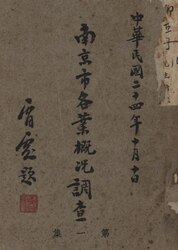 中華民國二十四年十月十日
南京市各業概况調查
第一集